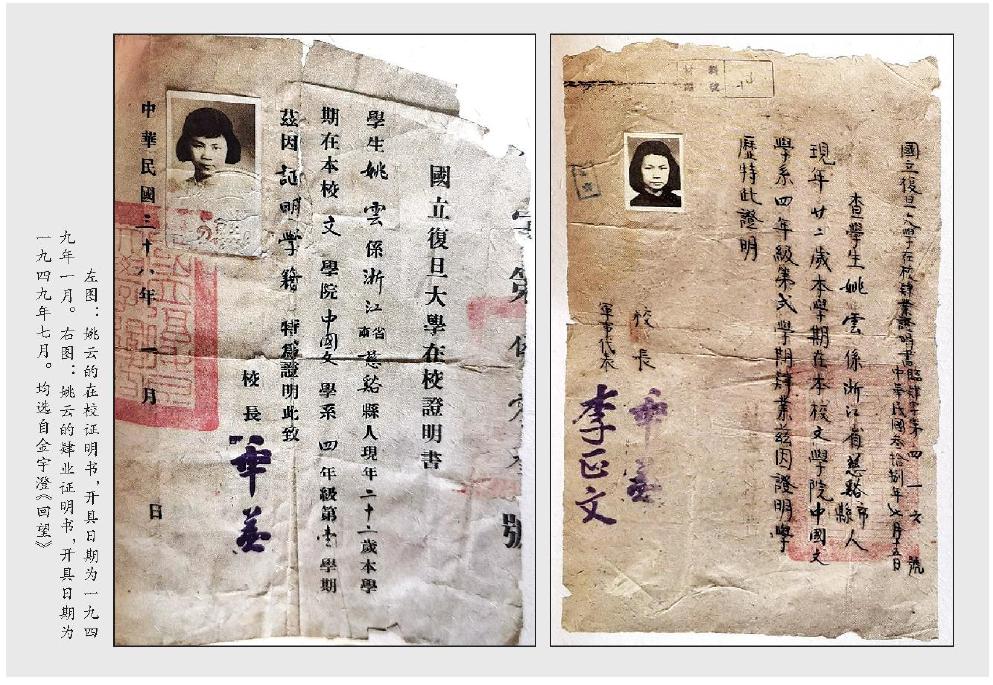 左图：姚云的在校证明书，开具日期为一九四
九年一月。右图：姚云的肄业证明书，开具日期为
一九四九年七月。均选自金宇澄《回望》
第
號
國立復旦大學在校證明書
學生姚雲係浙江省慈谿縣人現年二十二歲本學
期在本校文學院中國文學系四年級第壹學期
茲因証明学籍特為證明此致
校長
章益
中華民國三十八年一月
日
國立復旦大學在校肄業證明書臨肄字第四一六號
中華民國叁拾捌年七月十五日
查學生姚雲係浙江省慈谿縣市人
現年廿二歲本學期在本校文學院中國文
學系四年級第弍學期肄業茲因證明學
歷特此證明
校長
章益
軍事代表
李正文